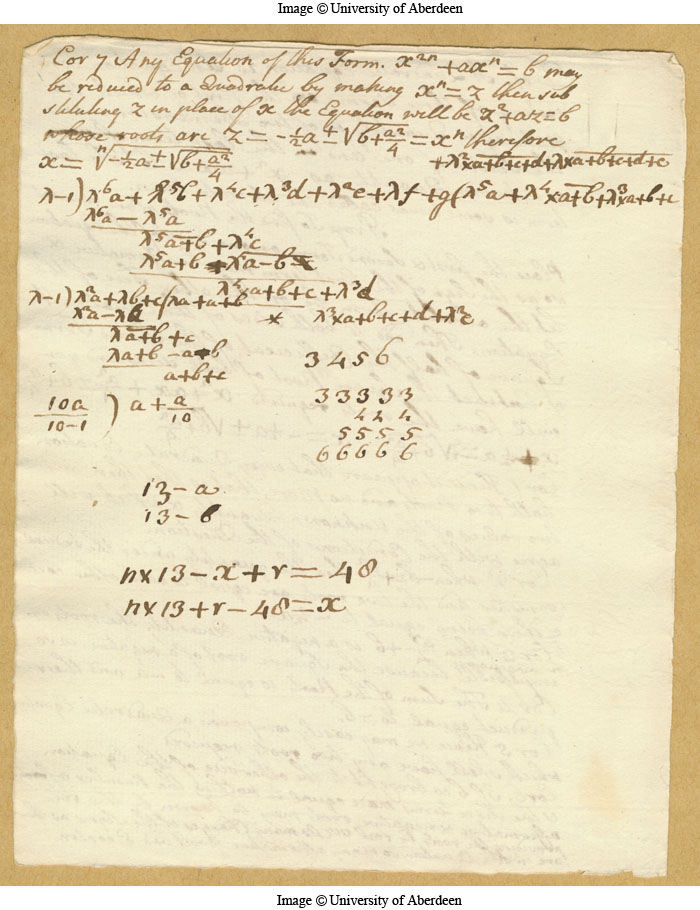 Image © University of Aberdeen
Cor 7 Any Equation of this Form. x²ⁿ + axⁿ = b may
be reduced to a Quadratic by making xⁿ = z then sub
stituting z in place of x the Equation will be z² + az = b
whose roots are z = -½a ± √b + a²/4 = xⁿ therefore
x = ⁿ√-½a ± √b + a²/4
+ λ² × a+b+c+d + λ × a+b+c+d+e
λ-1) λ⁶a + λ⁵b + λ⁴c + λ³d + λ²e + λf + g (λ⁵a + λ⁴ × a+b + λ³ × a+b+c
λ⁶a - λ⁵a
λ⁵a+b + λ⁴c
λ⁵a+b
λ⁴ × a+b+c + λ³d
λ-1) λ²a + λb + c (λa + a+b
λ²a - λa
* λ³ × a+b+c+d + λ²e
λa+b + c
λa+b - a+b
a+b+c
3 4 5 6
3 3 3 3 3
4 4 4
5 5 5 5
6 6 6 6 6
10a/10-1 ) a + a/10
13 - a
13 - b
n × 13 - x + r = 48
n × 13 + r - 48 = x
Image © University of Aberdeen